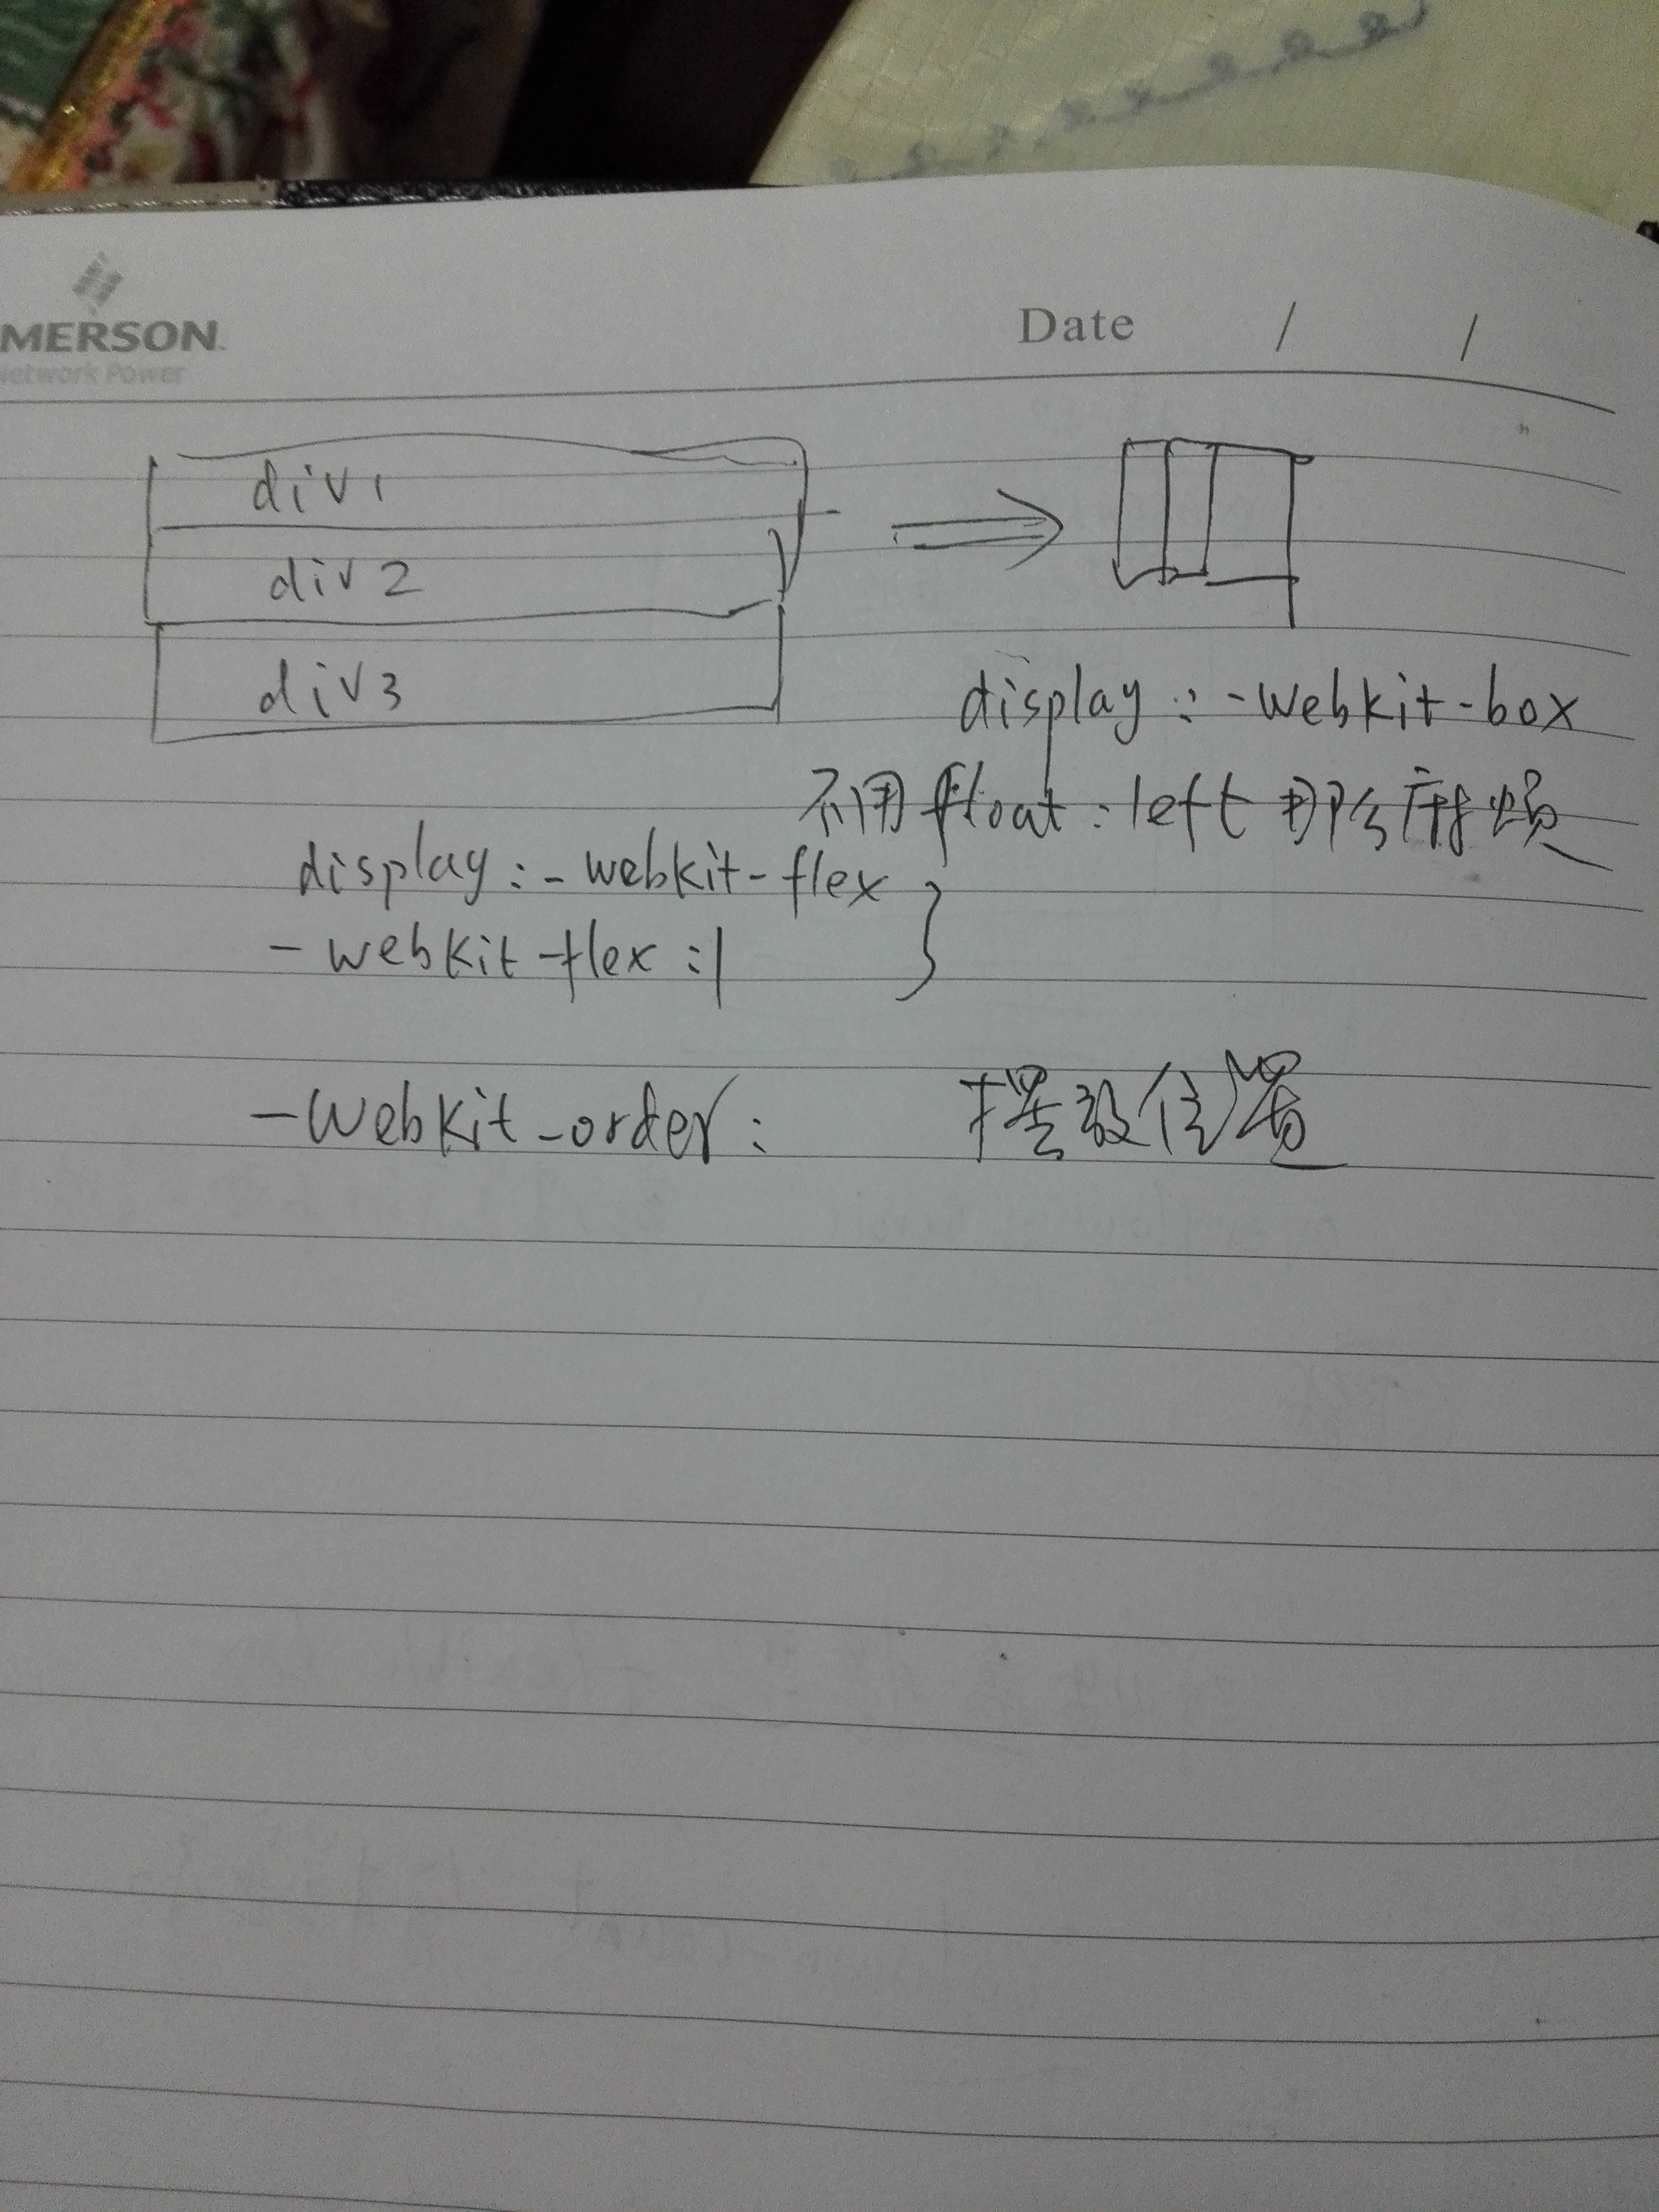 MERSON
Network Power
Date / /
div1
div2
div3
display : -webkit-box
不用float:left 那么麻烦
display : -webkit-flex
-webkit-flex :1
-webkit-order : 摆放位置